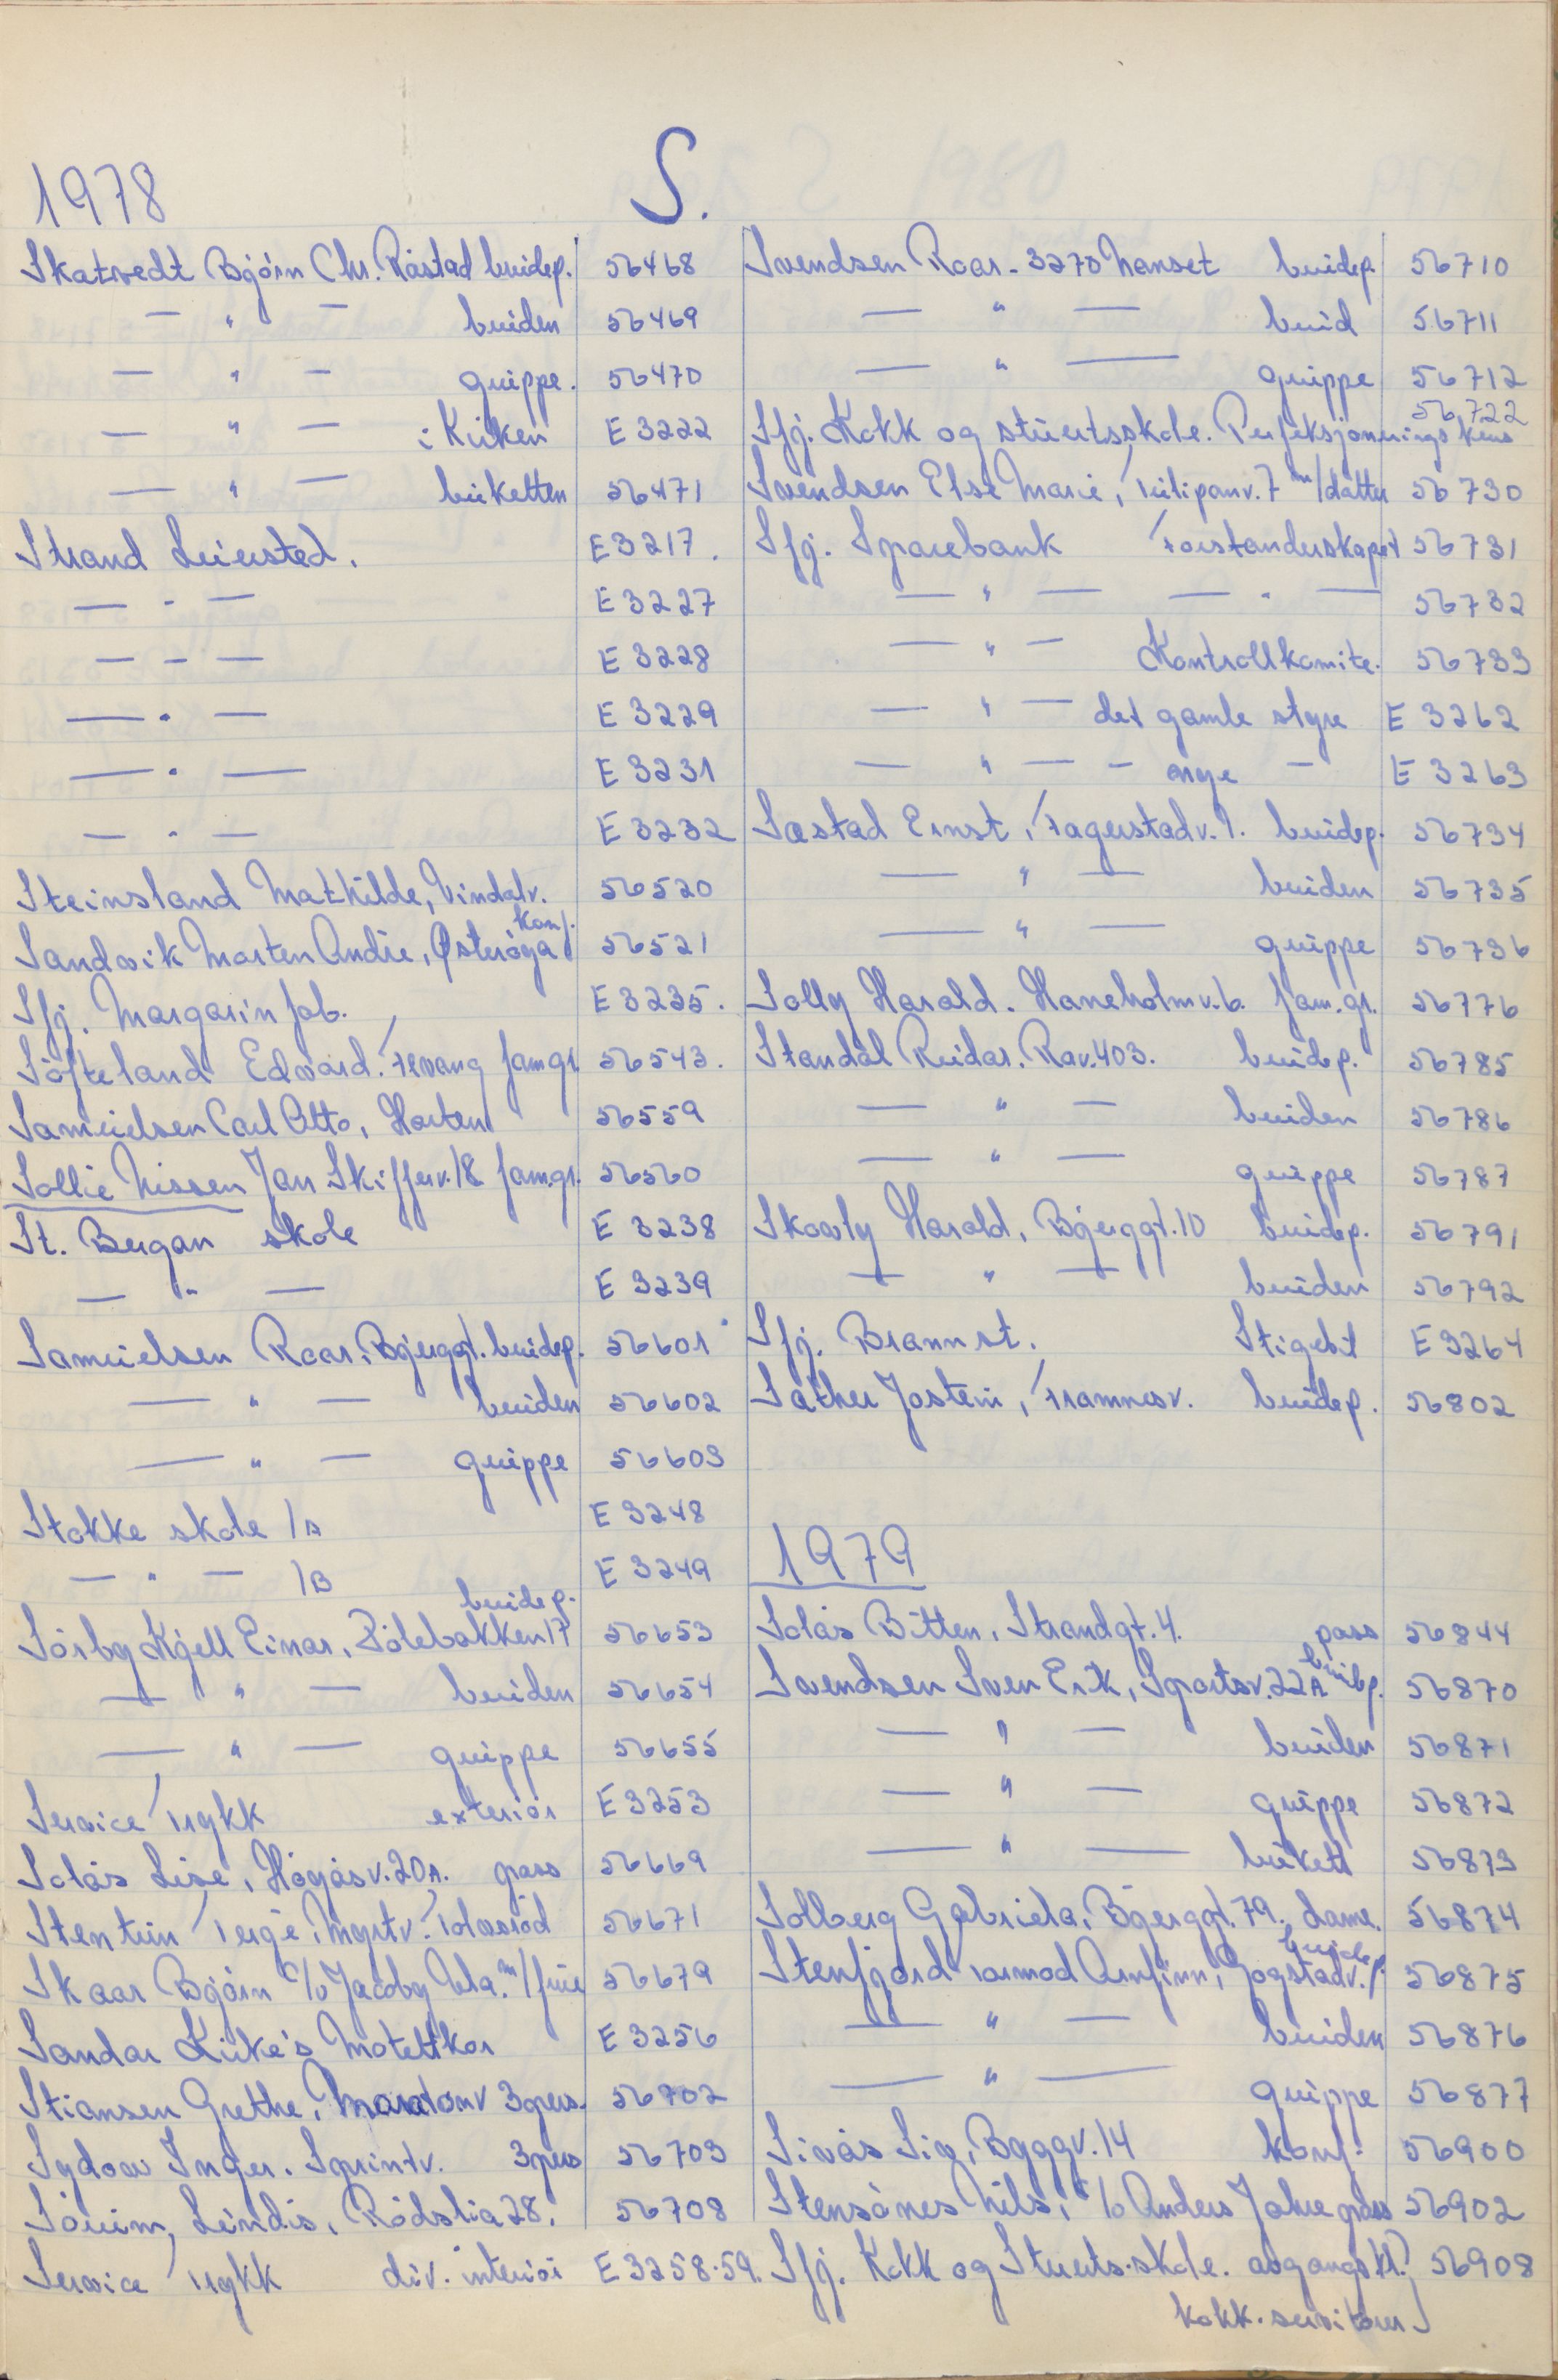 1978
S.
Skatvedt Bjørn Chr. Råstad brudep. 56468
— " — bruden 56469
— " — gruppe. 56470
— " — i Kirken E 3222
— " — buketten 56471
Strand Leirsted. E 3217.
— " — E 3227
— " — E 3228
— " — E 3229
— " — E 3231
— " — E 3232
Steinsland Mathilde, Vindalv. 56520
Sandvik Morten Andre, Østerøya konf. 56521
Sfj. Margarin fab. E 3235.
Søfteland Edvard. Fevang fam.gr. 56543.
Samuelsen Carl Otto, Horten 56559
Sollie Nissen Jan Skifferv. 18 fam.gr. 56560
St. Bergan skole E 3238
— " — E 3239
Samuelsen Roar, Bjerggt. brudep. 56601
— " — bruden 56602
— " — gruppe 56603
Stokke skole 1A E 3248
— " — 1B E 3249
Sørby Kjell Einar, Pølebakken 17 brudep. 56653
— " — bruden 56654
— " — gruppe 56655
Service Trykk exteriør E 3253
Solås Lise, Høgåsv. 20A. pass 56669
Stentun Terje, Myrtv. Tolvsrød 56671
Skaar Bjørn c/o Jacoby m/frue 56679
Sandar Kirke's Motettkor E 3256
Stiansen Grethe, Maratonv 3 pers. 56702
Sydow Inger. Sprintv. 3 pers 56703
Sørum, Lindis, Rødslia 28. 56708
Service Trykk div. interiør E 3258-59.
Svendsen Roar - 3270 Nanset brudep. 56710
— " — brud 56711
— " — gruppe 56712
Sfj. Kokk og stuertsskole. Perfeksjonerings kurs 56722
Svendsen Else Marie, Tulipanv. 7 m/datter 56730
Sfj. Sparebank Forstanderskapet 56731
— " — — " — 56732
— " — Kontrollkomite. 56733
— " — det gamle styre E 3262
— " — - nye - E 3263
Sæstad Ernst, Fagerstadv. 1. brudep. 56734
— " — bruden 56735
— " — gruppe 56736
Solly Harald. Haneholmv. 6. fam.gr. 56776
Standal Reidar. Rav. 403. brudep. 56785
— " — bruden 56786
— " — gruppe 56787
Skovly Harald, Bjerggt. 10 brudep. 56791
— " — bruden 56792
Sfj. Brannst. Stigebil E 3264
Sather Jostein, Framnesv. brudep. 56802
1979
Solås Bitten, Strandgt. 4. pass 56844
Svendsen Sven Erik, Sportsv. 22A brudep. 56870
— " — bruden 56871
— " — gruppe 56872
— " — bukett 56873
Solberg Gabriela, Bjerggt. 79. dame. 56874
Stenfjord Tormod Arnfinn, Gogstadv. brudep. 56875
— " — bruden 56876
— " — gruppe 56877
Sivås Siv, Byggv. 14 konf. 56900
Stensønes Nils, c/o Anders Jahre pass 56902
Sfj. Kokk og Stuerts.skole. avgangskl. 56908
kokk. servitører